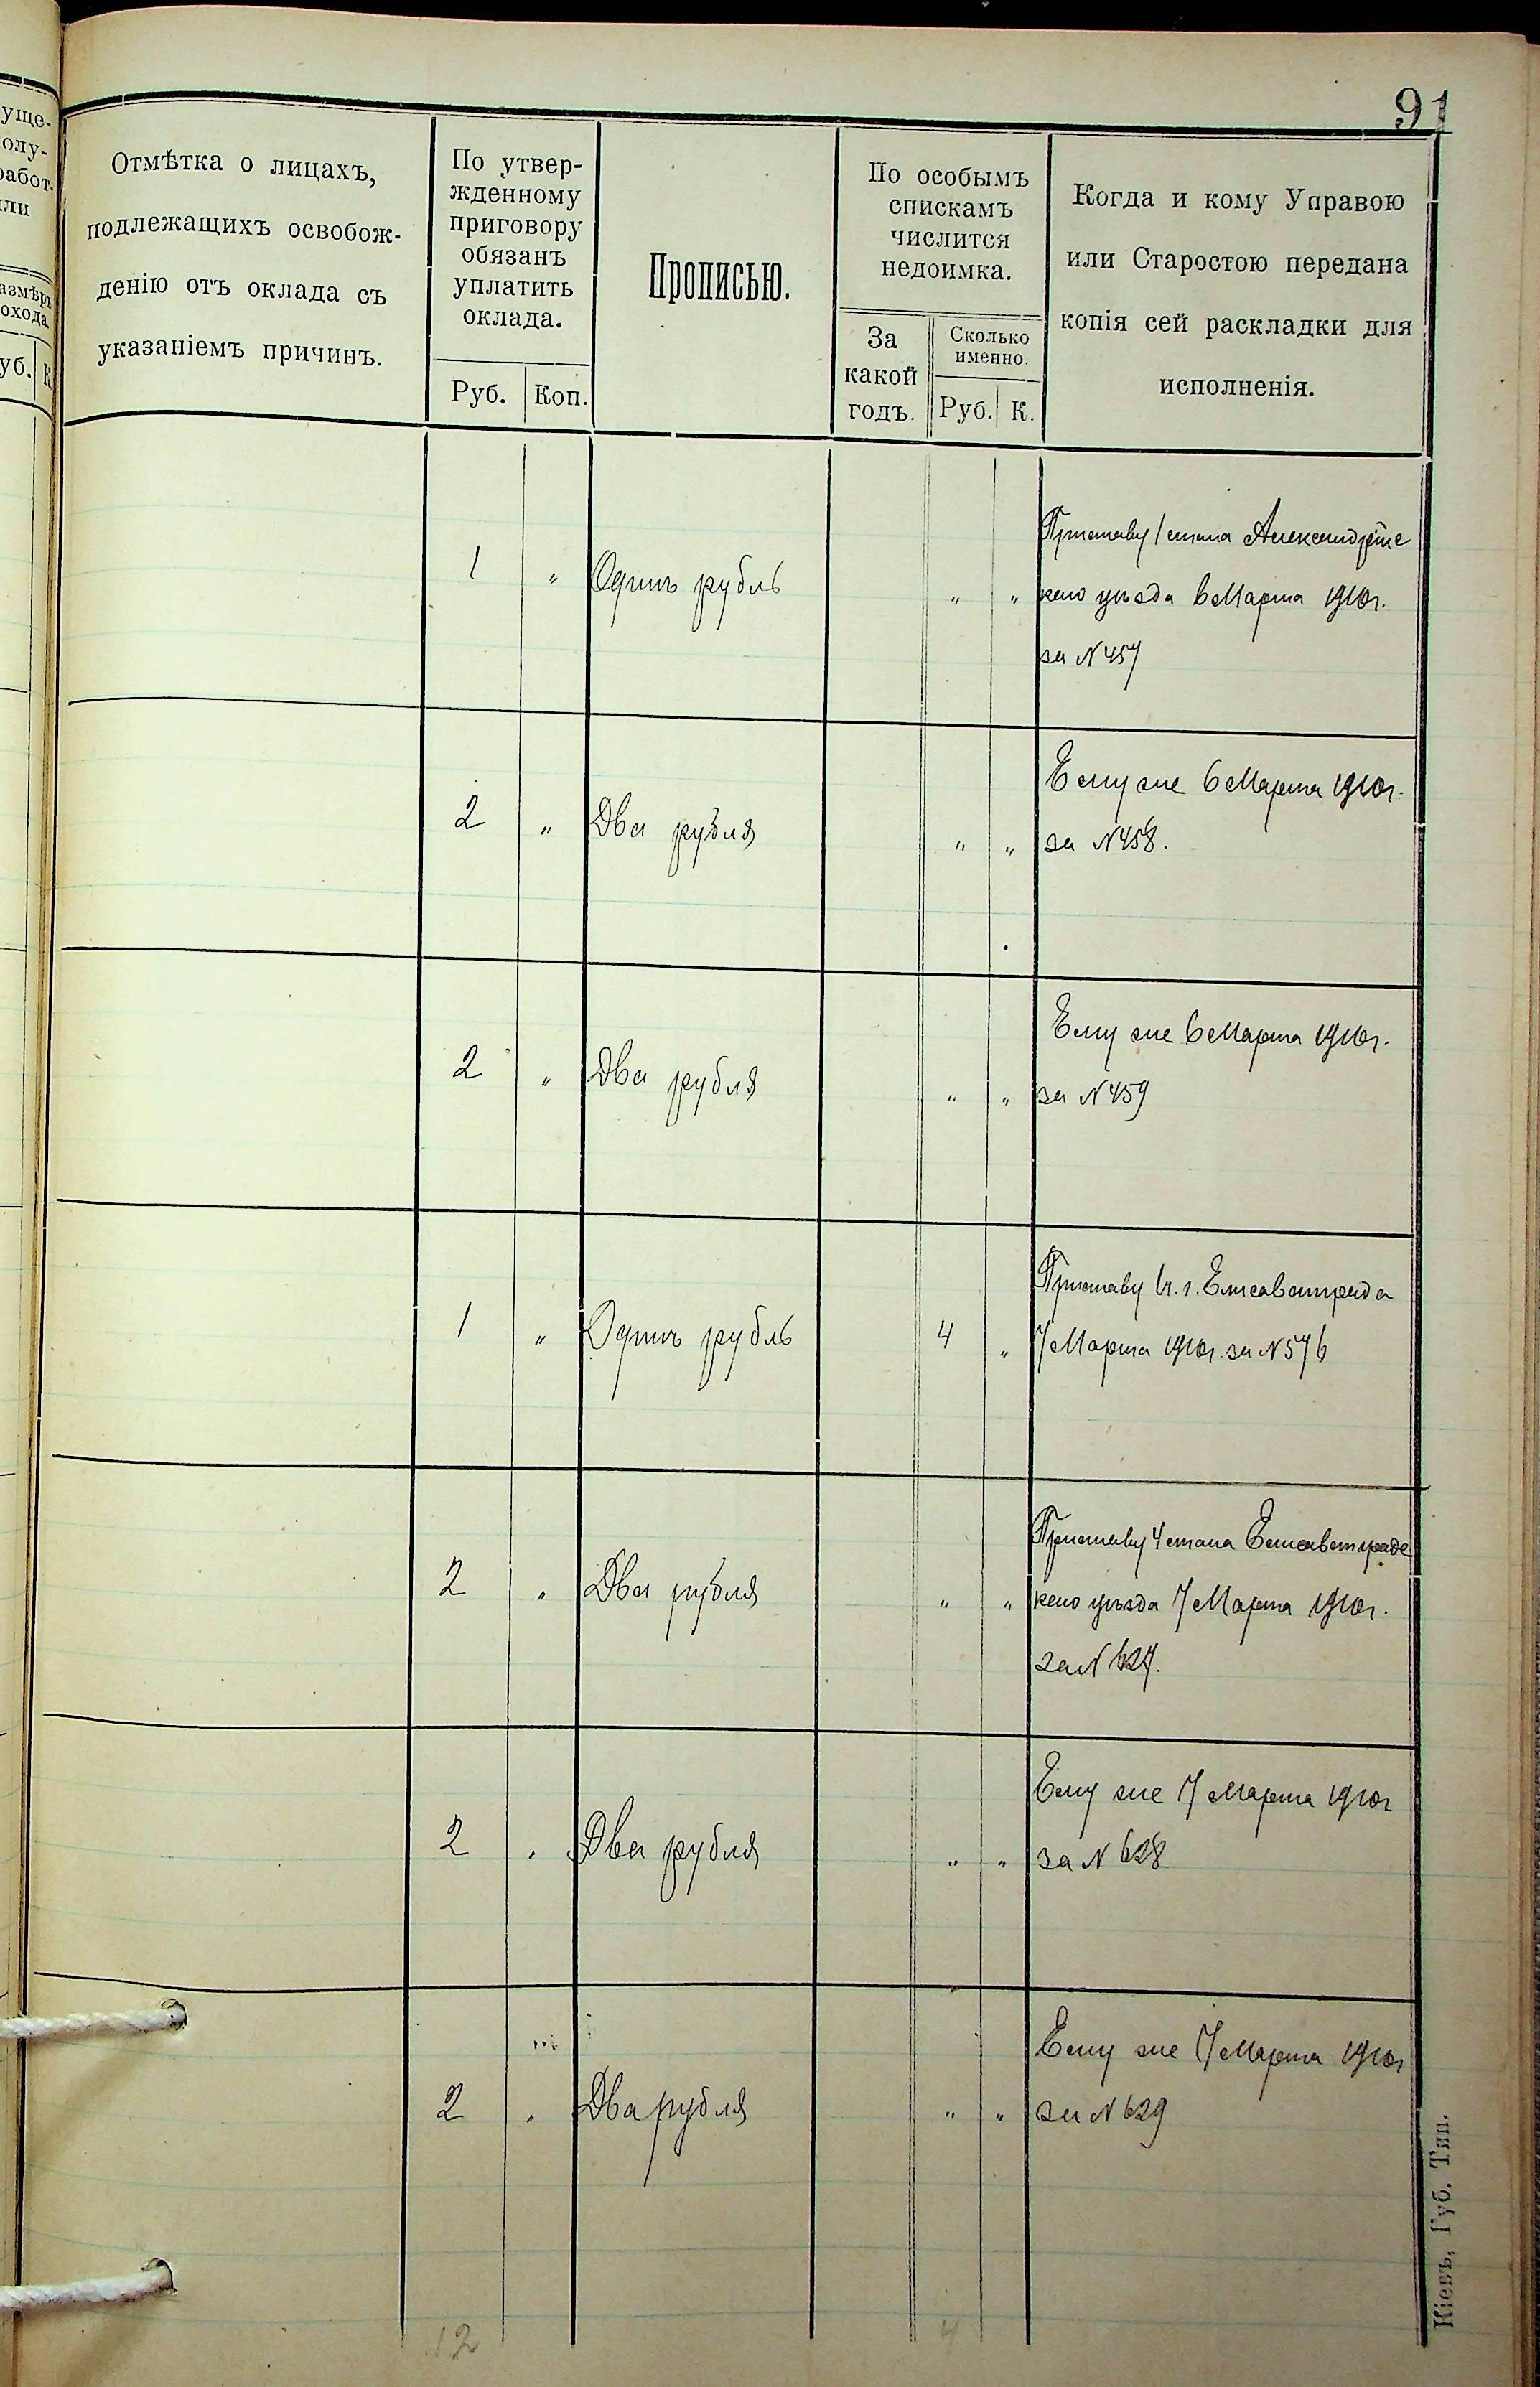 91
Отмѣтка о лицахъ,
подлежащихъ освобож-
денію отъ оклада съ
указаніемъ причинъ.
По утвер-
жденному
приговору
обязанъ
уплатить
оклада.
Руб. Коп.
Прописью.
По особымъ
спискамъ
числится
недоимка.
За
какой
годъ.
Сколько
именно.
Руб. К.
Когда и кому Управою
или Старостою передана
копія сей раскладки для
исполненія.
1 " Одинъ рубль " "
Приставу 1 стана Александрійс
каго уѣзда 6 Марта 1910г.
за N 457
2 " Два рубля " "
Ему же 6 Марта 1910г.
за N 458.
2 " Два рубля " "
Ему же 6 Марта 1910г.
за N 459
1 " Одинъ рубль 4 "
Приставу г. Елисаветграда
7 Марта 1910г. за N 576
2 " Два рубля " "
Приставу 4 стана Елисаветградс
каго уѣзда 7 Марта 1910г.
за N 627.
2 " Два рубля " "
Ему же 7 Марта 1910г
за N 628
2 " Два рубля " "
Ему же 7 Марта 1910г
за N 629
12 4
Кіевъ, Губ. Тип.
уще-
олу-
работ.
или
азмѣръ
охода
уб. К